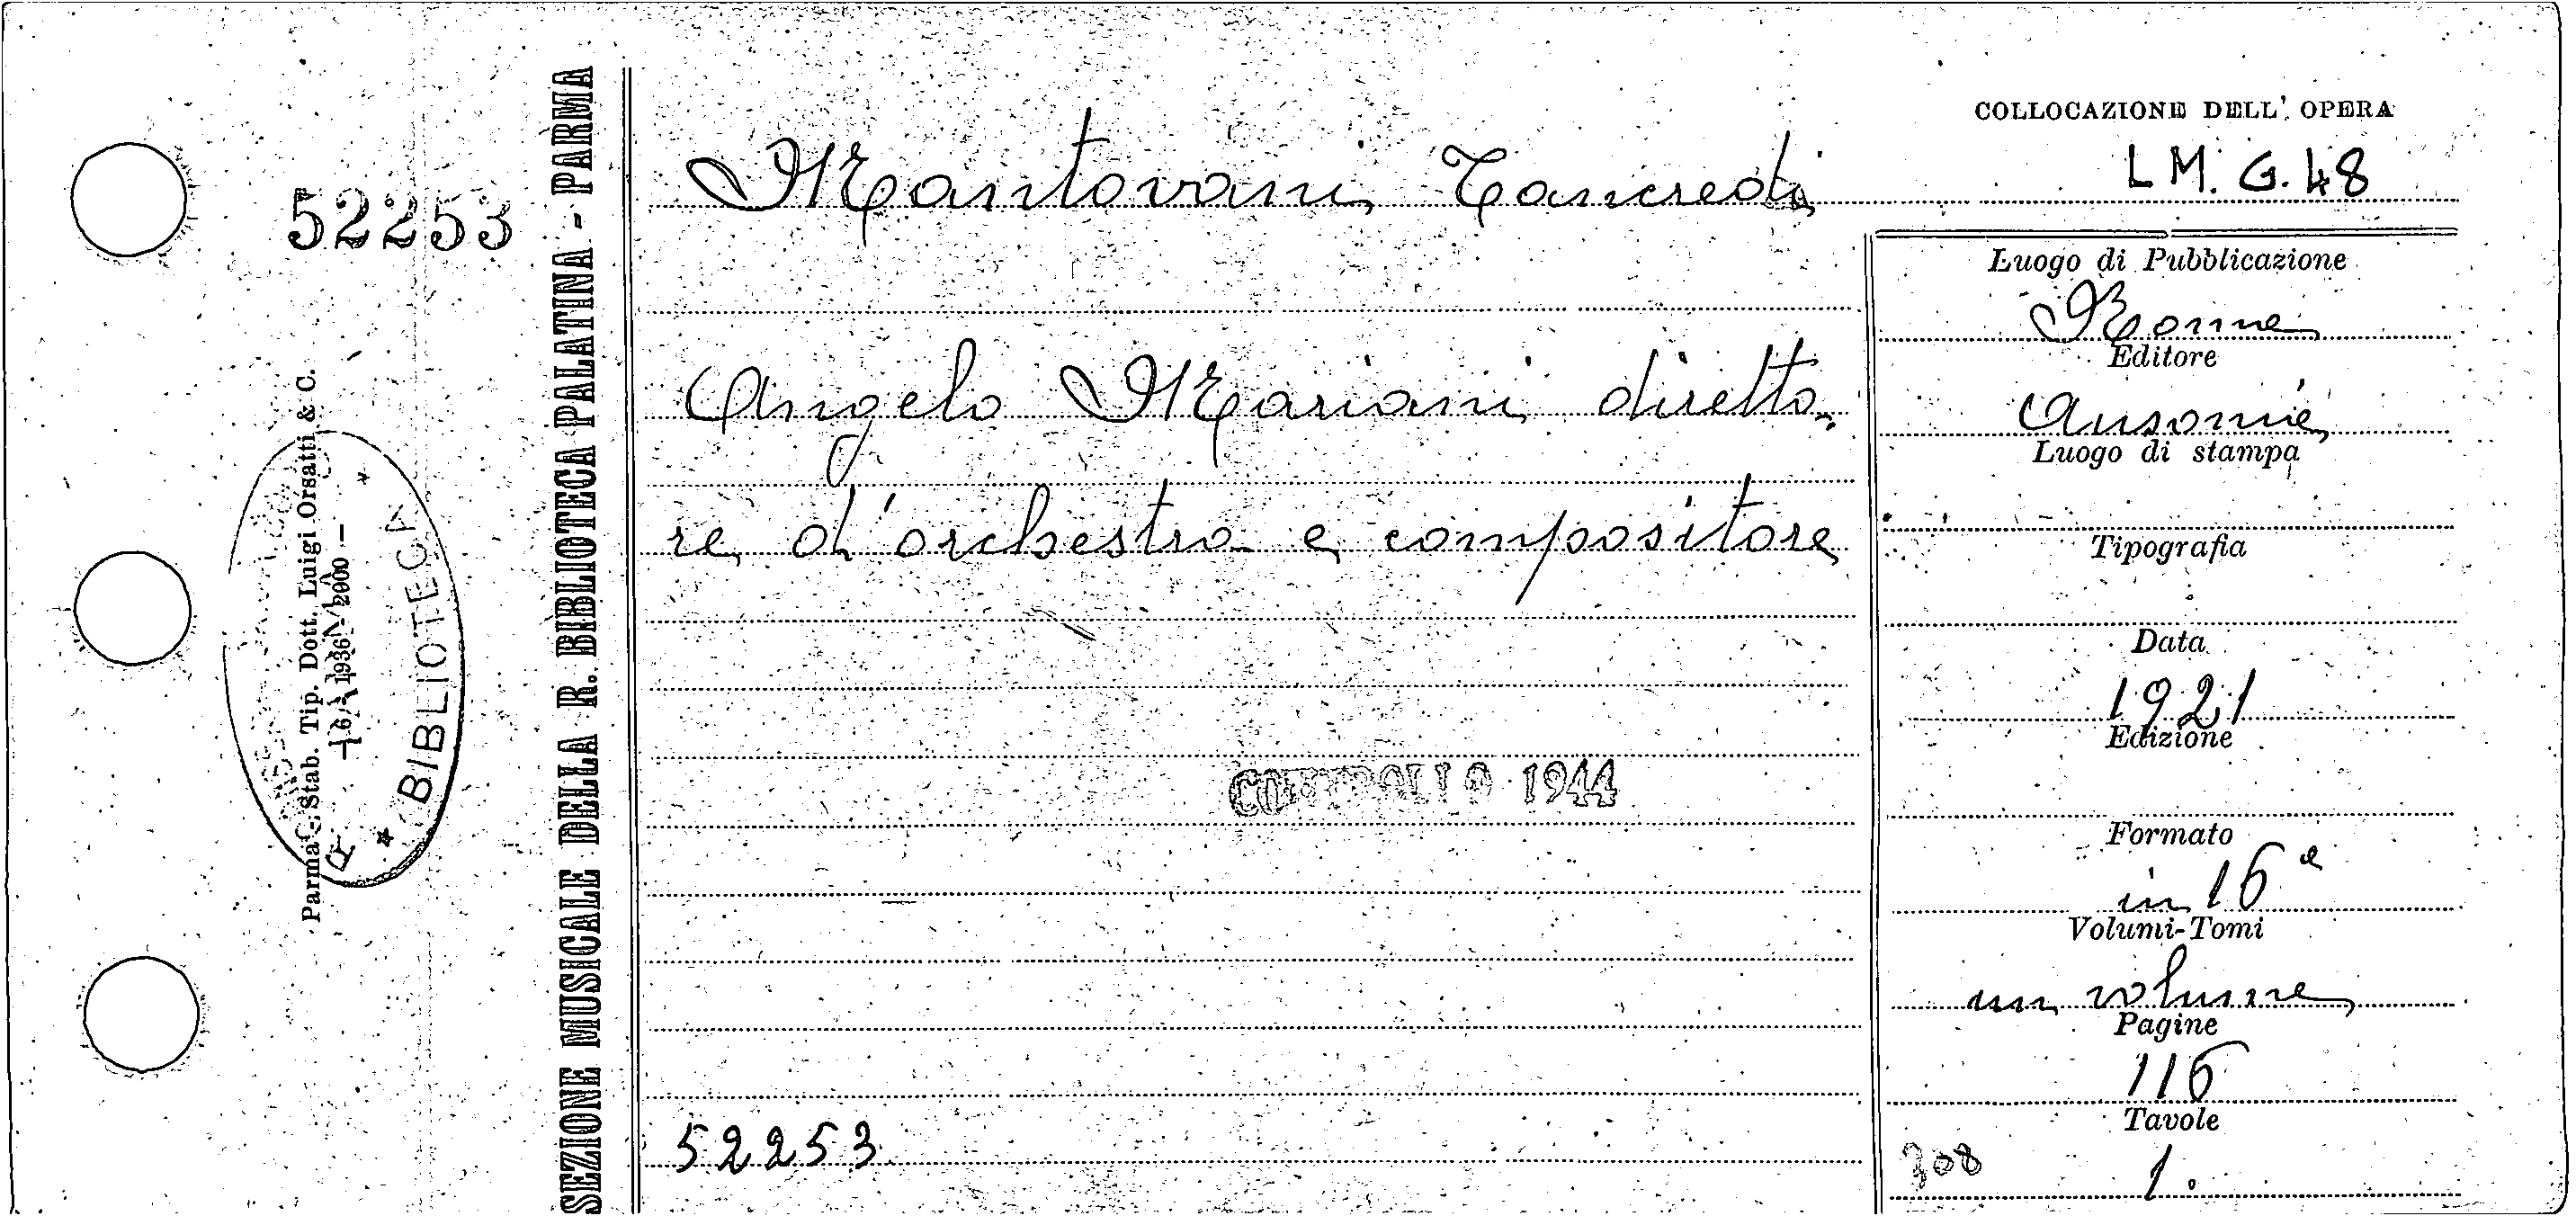 COLLOCAZIONE DELL' OPERA
LM. G. 48
Mantovani Tancredi
52253
Angelo Mariani diretto-
re d'orchestra e compositore
CONTROLLO 1944
52253
Luogo di Pubblicazione
Roma
Editore
Ausonia
Luogo di stampa
Tipografia
Data
1921
Edizione
Formato
in 16°
Volumi-Tomi
un volume
Pagine
116
Tavole
308
1.
SEZIONE MUSICALE DELLA R. BIBLIOTECA PALATINA - PARMA
Parma - Stab. Tip. Dott. Luigi Orsatti & C.
1936 - 2000 -
BIBLIOTECA